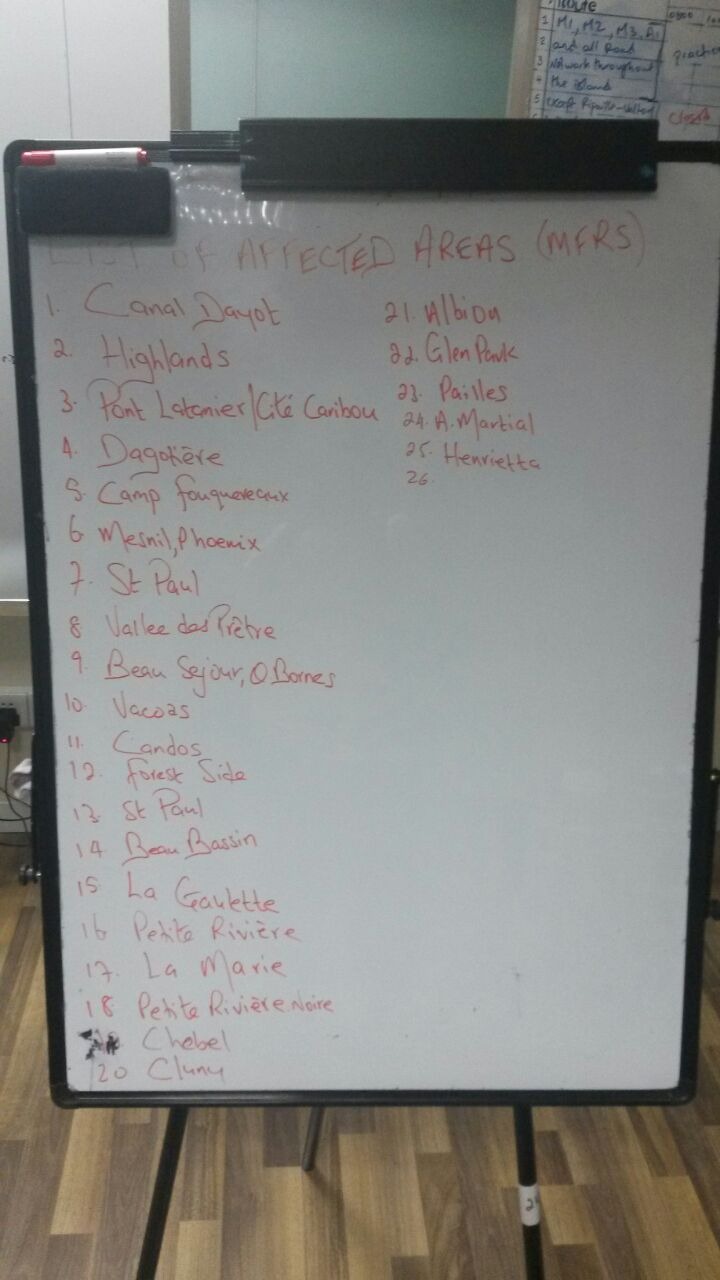 Route
1 M1, M2, M3, A1
2 and all Road
3 Network throughout
4 the islands
5 except Ripaille-Valton
Closed
LIST OF AFFECTED AREAS (MFRS)
1. Canal Dayot
2. Highlands
3. Pont Latanier/Cité Caribou
4. Dagotière
5. Camp Fouquereaux
6 Mesnil, Phoenix
7. St Paul
8 Vallee des Prêtre
9. Beau Sejour, Q Bornes
10. Vacoas
11. Candos
12. Forest Side
13. St Paul
14 Beau Bassin
15 La Gaulette
16 Petite Rivière
17. La Marie
18 Petite Rivière Noire
Chebel
20 Cluny
21. Albion
22. Glen Park
23. Pailles
24. A. Martial
25. Henrietta
26.